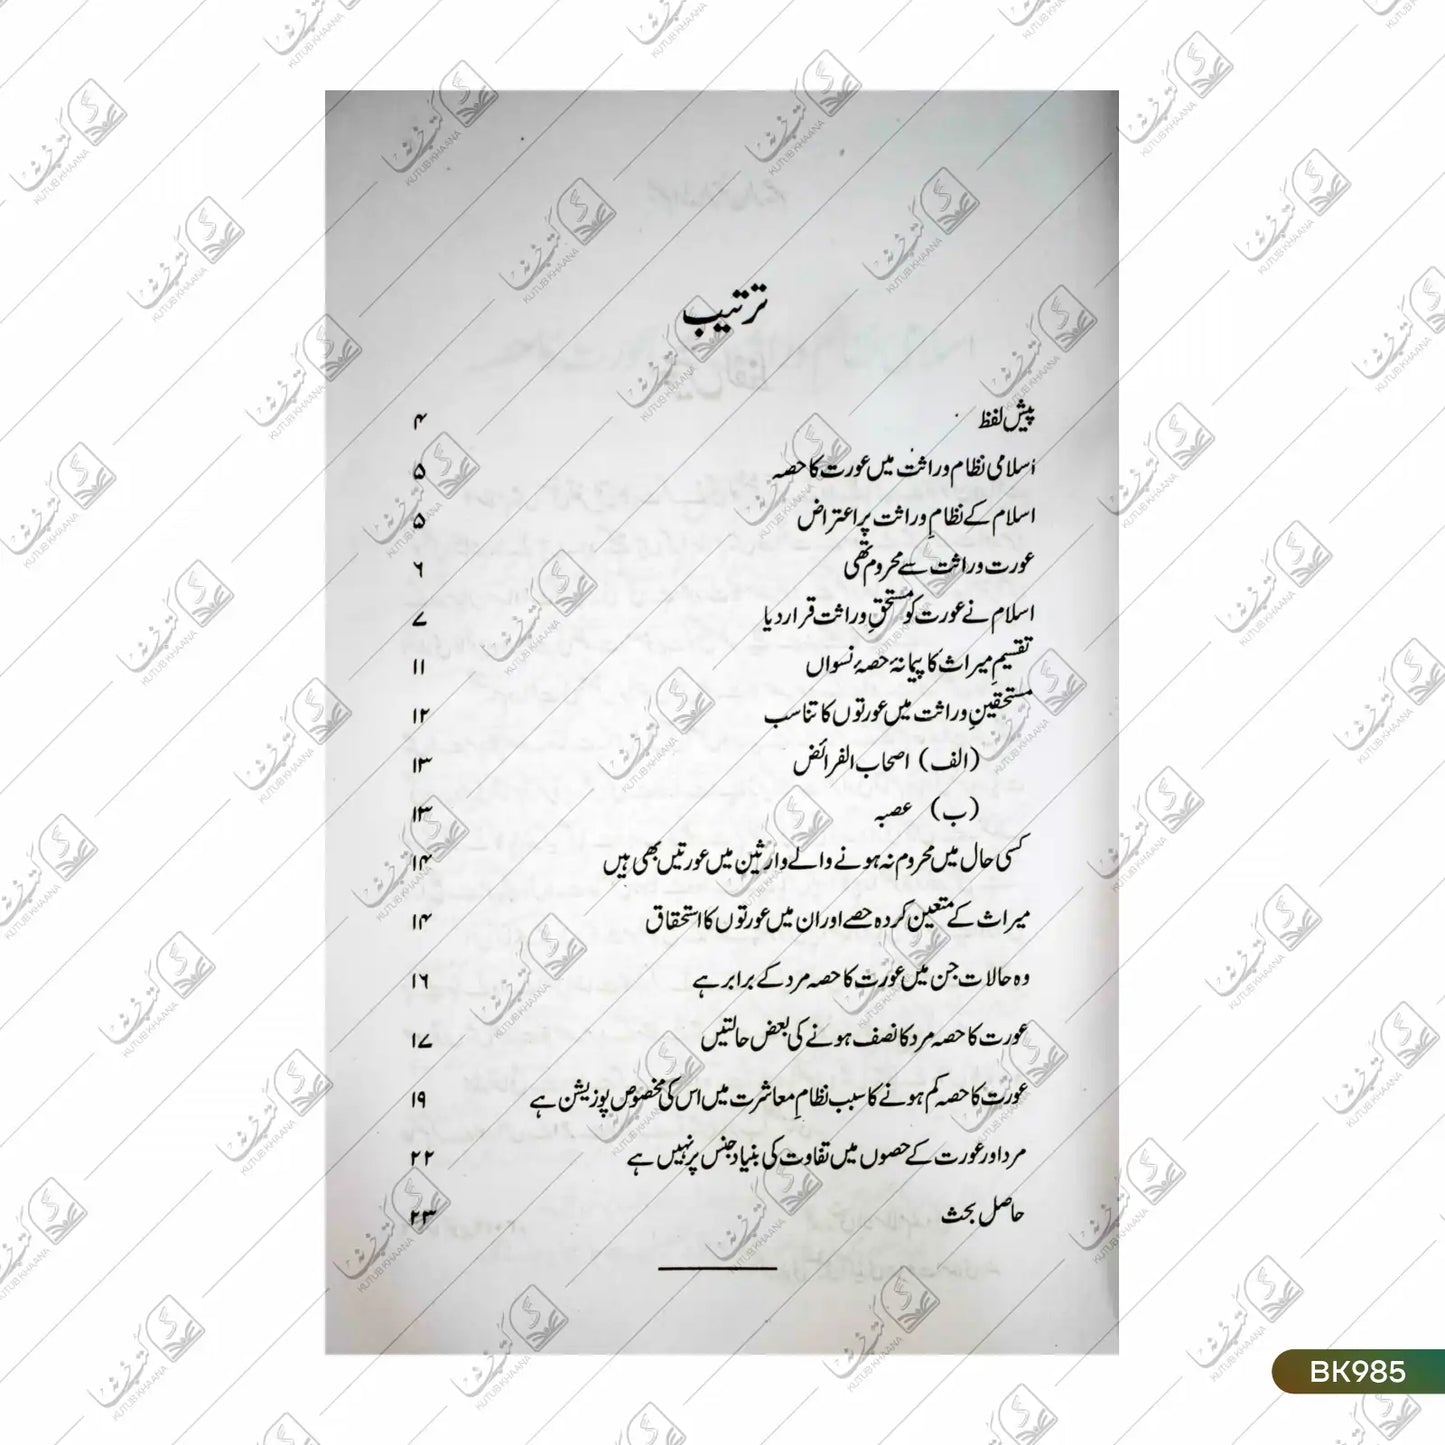 ترتیب
پیش لفظ ۴
اسلامی نظام وراثت میں عورت کا حصہ ۵
اسلام کے نظامِ وراثت پر اعتراض ۵
عورت وراثت سے محروم تھی ۶
اسلام نے عورت کو مستحقِ وراثت قرار دیا ۷
تقسیمِ میراث کا پیمانۂ حصۂ نسواں ۱۱
مستحقینِ وراثت میں عورتوں کا تناسب ۱۲
(الف) اصحاب الفرائض ۱۳
(ب) عصبہ ۱۳
کسی حال میں محروم نہ ہونے والے وارثین میں عورتیں بھی ہیں ۱۴
میراث کے متعین کردہ حصے اور ان میں عورتوں کا استحقاق ۱۴
وہ حالات جن میں عورت کا حصہ مرد کے برابر ہے ۱۶
عورت کا حصہ مرد کا نصف ہونے کی بعض حالتیں ۱۷
عورت کا حصہ کم ہونے کا سبب نظامِ معاشرت میں اس کی مخصوص پوزیشن ہے ۱۹
مرد اور عورت کے حصوں میں تفاوت کی بنیاد جنس پر نہیں ہے ۲۲
حاصل بحث ۲۳
BK985